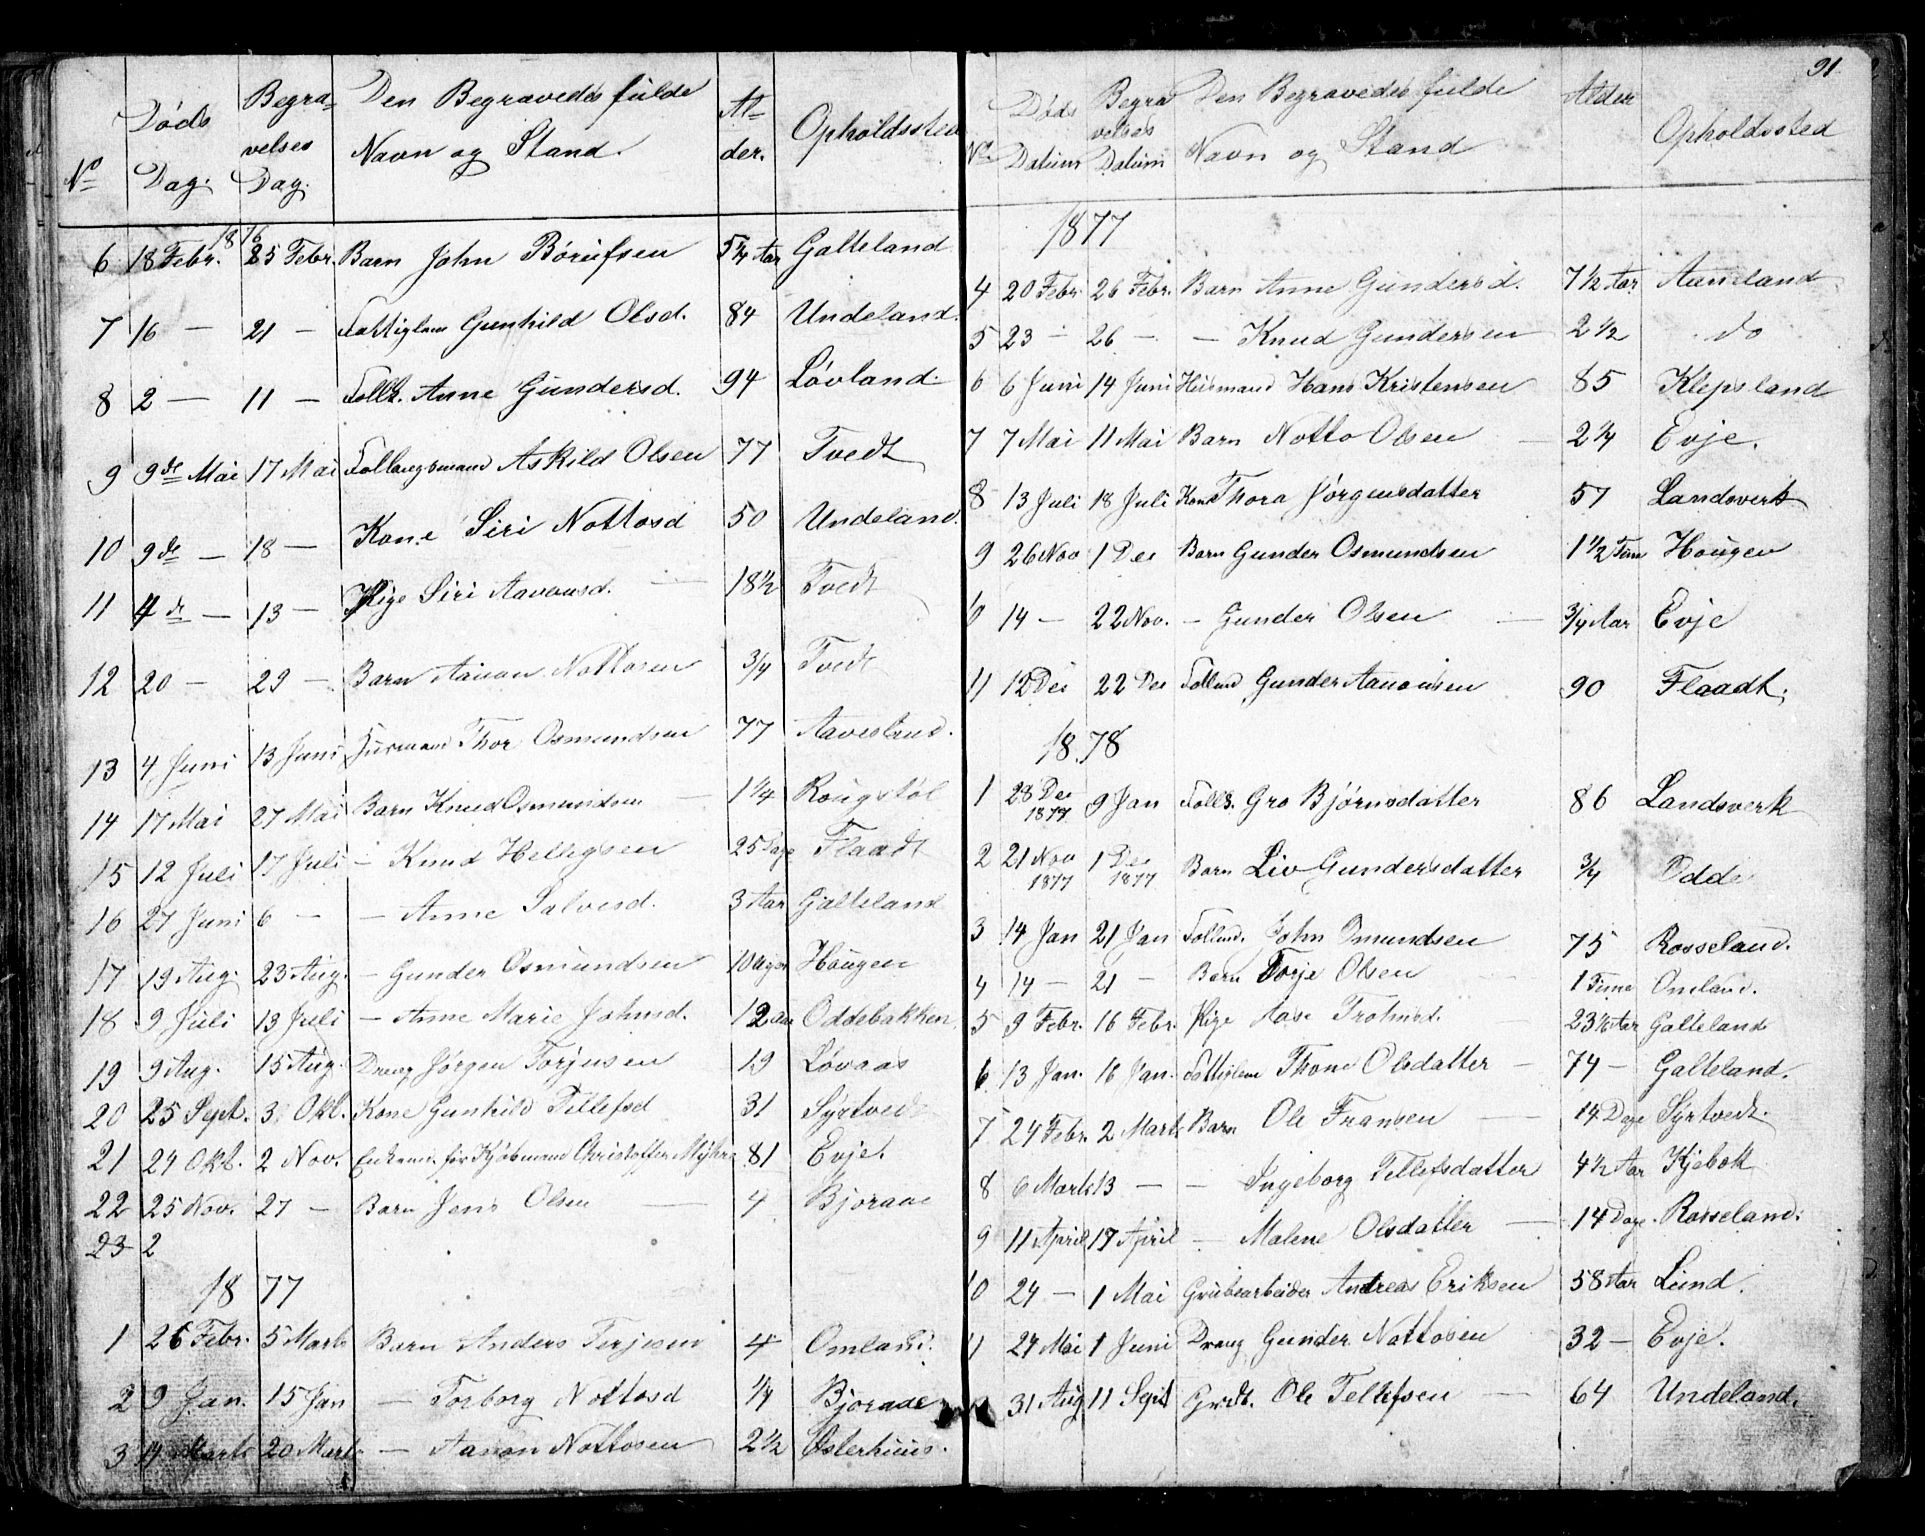 No | Døds Dag. | Begravelses Dag. | Den Begravedes fulde Navn og Stand. | Alder. | Opholdssted
1876
6 | 18 Febr. | 25 Febr. | Barn John Børufsen | 5 1/4 Aar | Galteland
7 | 16 — | 21 — | Fattiglem Gunhild Olsd. | 84 | Undeland.
8 | 2 — | 11 — | Follk. Anne Gundersd. | 94 | Løvland.
9 | 9de Mai | 17 Mai | Follaugsmand Askild Olsen | 77 | Tvedt
10 | 9de — | 18 — | Kone Siri Nottosd | 50 | Undeland.
11 | 4de — | 13 — | Pige Siri Aavousd. — | 18 1/2 | Tvedt
12 | 20 — | 29 — | Barn Aanon Nottosen | 3/4 | Tvedt
13 | 4 Juni | 13 Juni | Husmand Thor Osmundsen | 77 | Aavestrud.
14 | 17 Mai | 27 Mai | Barn Knud Osmundsen — | 1 1/4 | Rougstøl
15 | 12 Juli | 17 Juli | — Knud Hellegsen | 25 Dage | Flaadt
16 | 27 Juni | 6 — | — Anne Salvesd. | 3 Aar | Galteland
17 | 19 Aug. | 23 Aug. | — Gunder Osmundsen | 10 Uger | Hougen
18 | 9 Juli | 13 Juli | — Anne Marie Johnsd. | 12 Aar | Oddebakken
19 | 9 Aug. | 15 Aug. | Dreng Jørgen Torjusen | 19 | Løvaas
20 | 25 Sept. | 3 Okt. | Kone Gunhild Tellefsd | 31 | Syrtvedt
21 | 24 Okt. | 2 Nov. | Enkemd. før Kjøbmand Christoffer Myhre | 81 | Evje.
22 | 25 Nov. | 27 — | Barn Jens Olsen — | 4 | Bjoraae
23 | 2
1877
1 | 26 Febr. | 5 Marts | Barn Anders Terjesen | 4 | Omland.
2 | 9 Jan. | 15 Jan | — Torborg Nottosd | 1/4 | Bjoraae
3 | 14 Marts | 20 Marts | — Aanon Nottosen | 2 1/2 | Østerhuus.
91
No. | Døds Datum | Begravelses Datum | Den Begravedes fulde Navn og Stand | Alder | Opholdssted
1877
4 | 20 Febr. | 26 Febr. | Barn Anne Gundersd. | 7 1/2 Aar. | Aaneland
5 | 23 — | 26 — | — Knud Gundersen | 2 1/2 | do
6 | 6 Juni | 14 Juni | Husmand Hans Kristensen | 85 | Klepsland
7 | 7 Mai | 11 Mai | Barn Notto Olsen — | 2 1/4 | Evje.
8 | 13 Juli | 18 Juli | Kone Thora Jørgensdatter | 57 | Landsverk
9 | 26 Nov | 1 Dec | Barn Gunder Osmundsen | 1 1/2 Time | Hougen
10 | 14 — | 22 Nov. | — Gunder Olsen — | 3/4 Aar | Evje
11 | 12 Dec | 22 Dec | Follmd Gunder Aanonsen | 90 | Flaadt.
1878
1 | 28 Dec 1877 | 9 Jan | Folls. Gro Bjørnsdatter | 86 | Landsverk
2 | 21 Nov 1877 | 1 Dec 1877 | Barn Liv Gundersdatter | 3/4 | Odde
3 | 14 Jan | 21 Jan | Follmd. John Omundsen | 75 | Rosseland.
4 | 14 — | 21 — | Barn Torje Olsen — | 1 Time | Omland.
5 | 9 Febr. | 16 Febr. | Pige Aase Trohnsd. — | 23 1/2 Aar | Galteland
6 | 13 Jan. | 16 Jan. | Fattiglem Thone Olsdatter — | 74 — | Galteland.
7 | 24 Febr. | 2 Marts | Barn Ole Fransen — | 14 Dage | Syrtvedt.
8 | 6 Marts | 13 — | — Ingeborg Tellefsdatter | 4 1/2 Aar | Kjebok
9 | 11 April | 17 April | — Malene Olsdatter — | 14 Dage. | Rosseland.
10 | 24 — | 1 Mai | Grubearbeider Andreas Eriksen | 58 Aar | Lund.
11 | 24 Mai | 1 Juni | Dreng Gunder Nottosen | 32 — | Evje.
31 Aug | 11 Sept | Grdt. Ole Tellefsen — | 64 | Undeland.